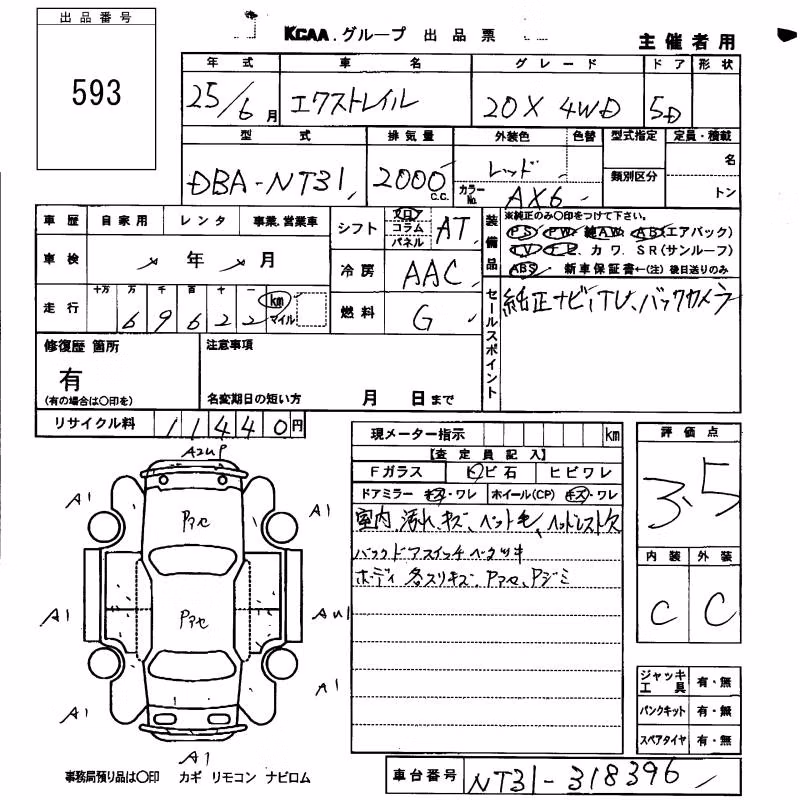 出品番号
593
KCAA.グループ 出品票
主催者用
年式 車名 グレード ドア 形状
25/6月 エクストレイル 20X 4WD 5D
型式 排気量 外装色 色替 型式指定 定員・積載
DBA-NT31 2000c.c. レッド 名
カラーNo. AX6 類別区分 トン
車歴 自家用 レンタ 事業、営業車
シフト フロア コラム パネル AT
装備品
※純正のみ○印をつけて下さい。
PS PW 純AW AB(エアバック)
TV ナビ、カワ、SR(サンルーフ)
ABS 新車保証書←(注)後日送りのみ
車検 年 月
冷房 AAC
走行 十万 万 千 百 十 一 km マイル
69622
燃料 G
セールスポイント
純正ナビ,TV、バックカメラ
修復歴 箇所
有
(有の場合は○印を)
注意事項
名変期日の短い方 月 日まで
リサイクル料 11440円
現メーター指示 km
【査定員記入】
Fガラス ヒビ石 ヒビワレ
ドアミラー キズ・ワレ ホイール(CP) キズ・ワレ
室内、汚れ、キズ、ペット毛、ヘッドレスト欠
バックドアスイッチベタツキ
ボディ 各スリキズ、Pアセ、Pジミ
評価点
3.5
内装 外装
C C
A2UP
A1
Pアセ
A1
A1
Pアセ
AU1
A1
A1
A1
ジャッキ工具 有・無
パンクキット 有・無
スペアタイヤ 有・無
事務局預り品は○印 カギ リモコン ナビロム
車台番号 NT31-318396